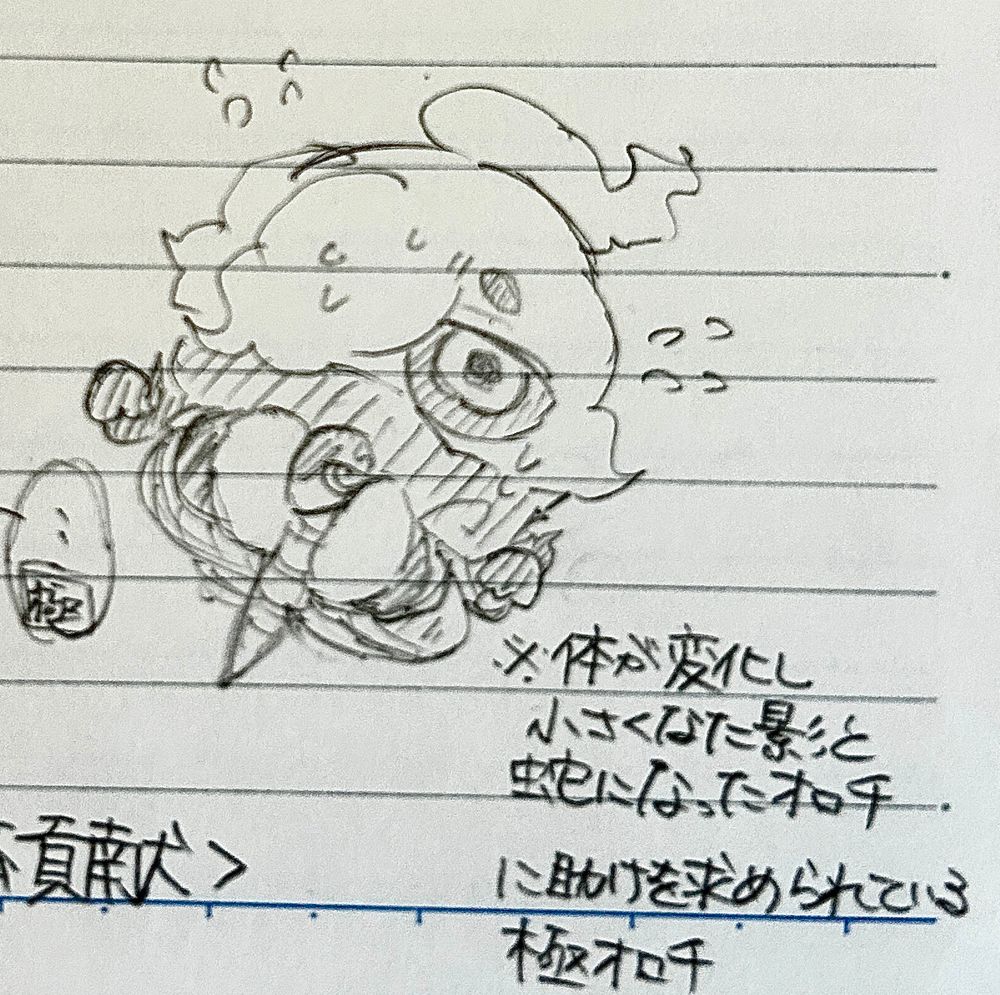 極
※体が変化し
小さくなた影と
蛇になったオロチ
献＞
に助けを求められている
極オロチ